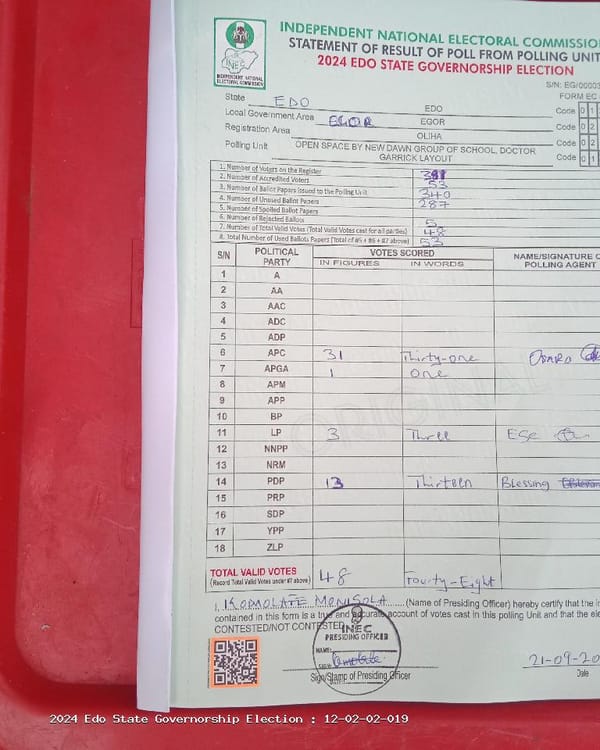 INDEPENDENT NATIONAL ELECTORAL COMMISSIO
STATEMENT OF RESULT OF POLL FROM POLLING UNIT
2024 EDO STATE GOVERNORSHIP ELECTION
INEC
INDEPENDENT NATIONAL ELECTORAL COMMISSION
S/N: EG/00003
FORM EC
State EDO EDO Code 0 1
Local Government Area EGOR EGOR Code 0 2
Registration Area OLIHA Code 0 2
Polling Unit OPEN SPACE BY NEW DAWN GROUP OF SCHOOL, DOCTOR GARRICK LAYOUT Code 0 1
1. Number of Voters on the Register
2. Number of Accredited Voters 53
3. Number of Ballot Papers Issued to the Polling Unit 340
4. Number of Unused Ballot Papers 287
5. Number of Spoiled Ballot Papers
6. Number of Rejected Ballots 5
7. Number of Total Valid Votes (Total Valid Votes cast for all parties) 48
8. Total Number of Used Ballots Papers (Total of #5 + #6 + #7 above) 53
S/N POLITICAL PARTY VOTES SCORED NAME/SIGNATURE O POLLING AGENT
IN FIGURES IN WORDS
1 A
2 AA
3 AAC
4 ADC
5 ADP
6 APC 31 Thirty-one
7 APGA 1 one
8 APM
9 APP
10 BP
11 LP 3 Three ESE
12 NNPP
13 NRM
14 PDP 13 Thirteen Blessing
15 PRP
16 SDP
17 YPP
18 ZLP
ORIGINAL
TOTAL VALID VOTES 48 Fourty-Eight
(Record Total Valid Votes under #7 above)
I, KOMOLAFE MONISOLA (Name of Presiding Officer) hereby certify that the in
contained in this form is a true and accurate account of votes cast in this polling Unit and that the ele
CONTESTED/NOT CONTESTED
INEC
PRESIDING OFFICER
NAME:
SIGN:
Sign/Stamp of Presiding Officer
21-09-20
Date
2024 Edo State Governorship Election : 12-02-02-019